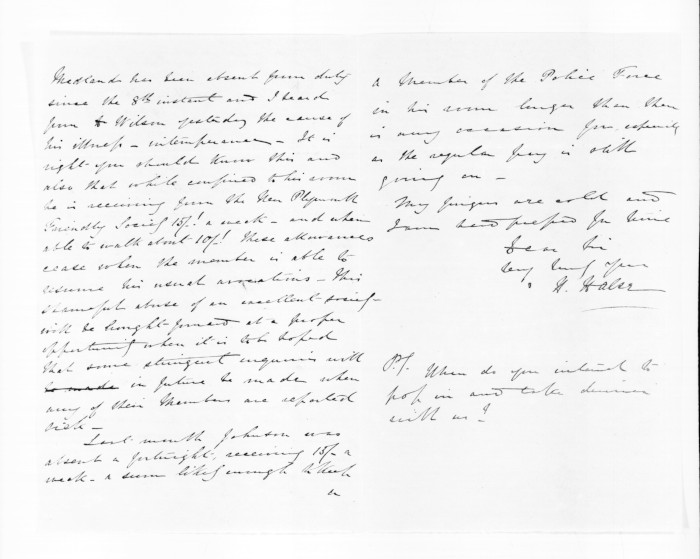 has been absent from duty
since the 8th instant and I heard
from Dr Wilson yesterday the cause of
his illness - intemperance - It is
right you should know this and
also that while confined to his room
he is receiving from the New Plymouth
Friendly Society 15/-! a week - and when
able to walk about 10/-! These allowances
cease when the member is able to
resume his usual avocations - This
shameful abuse of an excellent society -
will be brought forward at a proper
opportunity when it is to be hoped
that some stringent enquiries will
in future be made when
any of their Members are reported
sick -
Last month Johnson was
absent a fortnight, receiving 15/- a
week - a sum likely enough to keep
a Member of the Police Force
in his room longer than there
is any occasion for, especially
as the regular pay is still
going on -
My fingers are cold and
I am hard pressed for time
Dear Sir
very truly yours
H. Halse
P.S. When do you intend to
pop in and take dinner
with us?